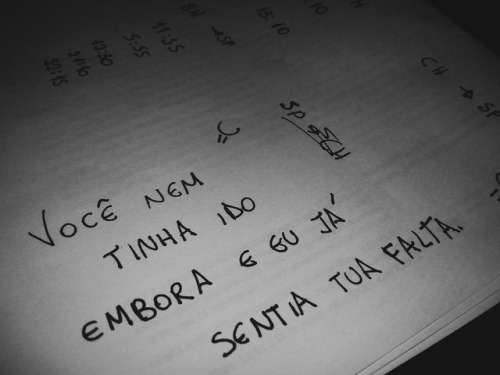 BH
→SP
15:10
11:55
5:55
12:30
21:10
CH → SP
SP
CH
VOCÊ NEM
TINHA IDO
EMBORA E EU JÁ
SENTIA TUA FALTA.